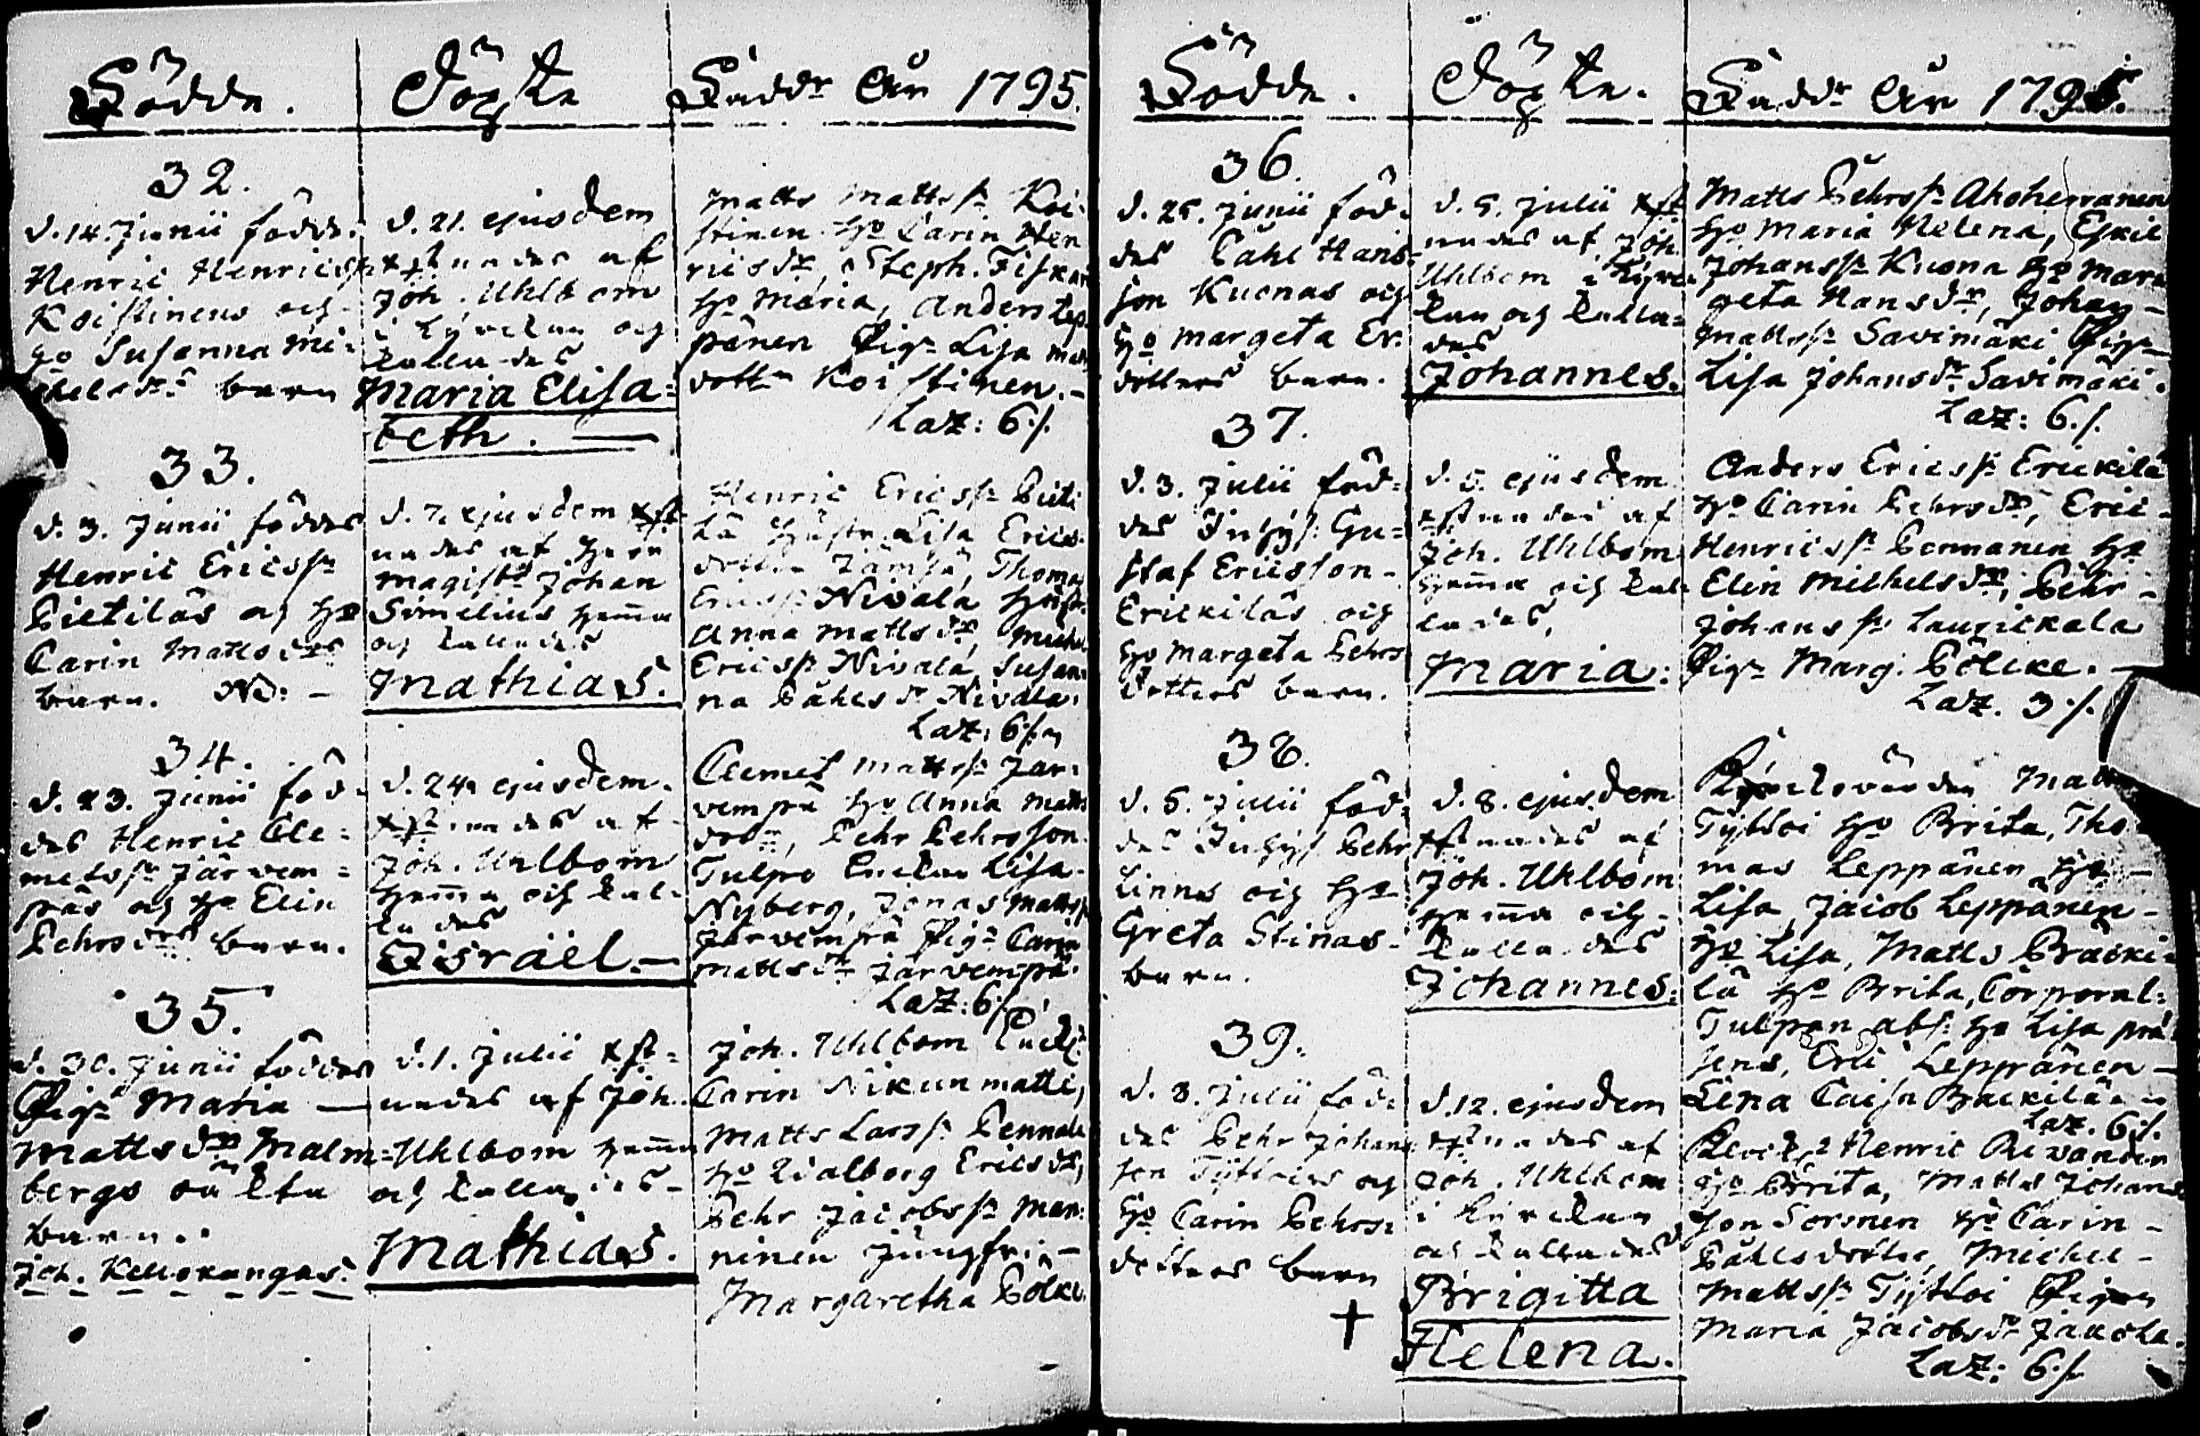 Födde.
Döpte
Fadd:r År 1795.
32.
d. 14. Junii födde:
Henric Henricss:
Koistinens och
H:o Susanna Mi:
chelsd:rs barn
d. 21. ejusdem
xstnades af
Joh. Uhlbom
i Kyrckan och
kallades
Maria Elisa=
beth.
Matts Mattss:n Koi:
stinen H:o Carin Hen
ricsd:r, Steph. Fiskar
H:o Maria, Anders Lep
pänen Pig:n Lisa Mats
dott:r Koistinen.
Laz: 6 /.
33.
d. 3. Junii föddes
Henric Ericss:n
Pietiläs och H:o
Carin Mattsd:rs
barn. Nö: -
d. 7. ejusdem xst
nades af Herr
Magist:r Johan
Simelius hem̄a
och kallades
Mathias.
Henric Ericss:n Pieti
lä Hustr. Lisa Erics
dotter Jämsä, Thomas
Ericss:n Nivala Hust:
Anna Mattsd:r, Michel
Ericss:n Nivala, Susan
na Påhlsd:r Nivala.
Laz: 6 /.
34.
d. 23. Junii föd:
des Henric Cle:
metss:n Järvem=
päs och H:o Elin
Pehrsd:rs barn.
d. 24. ejusdem.
xstnades af
Joh. Uhlbom
hem̄a och kal:
lades
Israël.
Clemet Mattss:n Jär:
vempä H:o Anna Matts
dott:r, Pehr Pehrsson
Tulpo Enckan Lisa
Nyberg, Jonas Mattss:
Järvempä Pig:n Carin
Mattsd:r Järvempä.
Laz: 6 /.
35.
d. 30. Junii föddes
Pig:n Maria —
Mattsd:r Malm=
bergs oäkta
barn.
Joh. Kellokangas.
d. 1. Julii xst=
nades af Joh.
Uhlbom hem̄a
och kallades
Mathias.
Joh. Uhlbom Enck:
Carin Nikun matti,
Matts Larss:n Pennala
H:o Walborg Ericsd:r,
Pehr Jacobss:n Man:
ninen Jungfru —
Margaretha Pölcke
Födde.
Döpte.
Fadd:r År 1795.
36.
d. 25. Junii föd:
des Påhl Hans
son Kuonas och
H:o Margeta Er.
dotters barn.
d. 5. Julii xst
nades af Joh.
Uhlbom i Kyrc
kan och kalla=
des
Johannes.
Matts Pehrss:n Ahoherranen
H:o Maria Helena, Eskil
Johanss:n Kuona H:o Mar
geta Hansd:r, Johan
Mattss:n Savimäki Pig:n
Lisa Johansd:r Savimäki.
Laz: 6. /.
37.
d. 3. Julii föd=
des Inhys: Gu=
staf Ericsson
Erickiläs och
H:o Margeta Pehrs
dotters barn.
d. 5. ejusdem
xstnades af
Joh. Uhlbom
hem̄a och kal
lades,
Maria.
Anders Ericss:n Erickilä
H:o Carin Pehrsd:r, Eric
Henricss:n Pennanen H:o
Elin Michelsd:r, Pehr
Johanss:n Laurickala
Pig:n Marg. Pölcke.
Laz. 3 /.
38.
d. 5. Julii föd:
des Inhys: Pehr
Linns och H:o
Greta Stinas
barn.
d. 8. ejusdem
xstnades af
Joh. Uhlbom
hem̄a och
kallades
Johannes.
Kyrckovärden Matts
Tyttoi H:o Brita, Tho
mas Leppänen H:o
Lisa, Jacob Leppänen
H:o Lisa, Matts Präcki
lä H:o Brita, Corporal:
Tulpan abs: H:o Lisa præ
sens, Eric Leppänen —
Lena Caisa Präckilä
Laz. 6 /.
39.
d. 8. Julii föd:
des Pehr Johans
son Tyttois och
H:o Carin Pehrs:
dotters barn
†
d. 12. ejusdem
xstnades af
Joh. Uhlbom
i Kyrckan
och kallades
Brigitta
Helena.
Henric Revonden
H:o Brita, Matts Johans
son Sorsnen H:o Carin
Påhlsdotter, Michel
Mattss:n Tyttoi Pigan
Maria Jacobsd:r Jauhola.
Laz: 6 /.